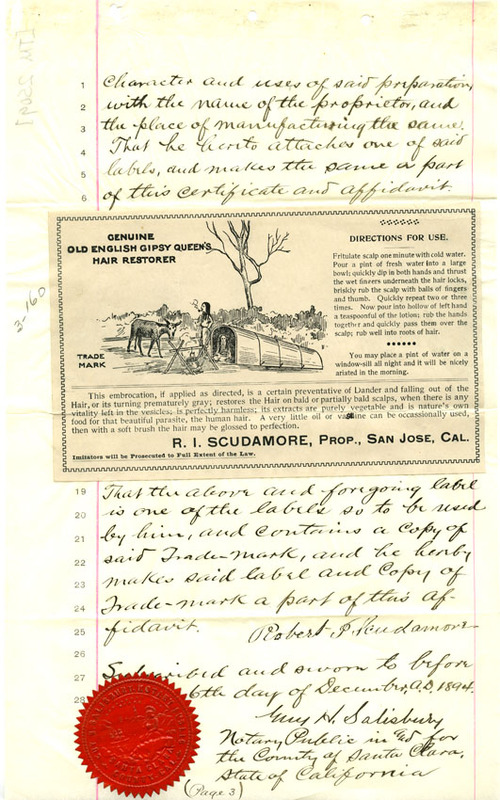 1 character and uses of said preparation,
2 with the name of the proprietor, and
3 the place of manufacturing the same.
4 That he hereto attaches one of said
5 labels, and makes the same a part
6 of this certificate and affidavit.
3-160
GENUINE
OLD ENGLISH GIPSY QUEEN'S
HAIR RESTORER
TRADE
MARK
DIRECTIONS FOR USE.
Fritulate scalp one minute with cold water.
Pour a pint of fresh water into a large
bowl; quickly dip in both hands and thrust
the wet fingers underneath the hair locks,
briskly rub the scalp with balls of fingers
and thumb. Quickly repeat two or three
times. Now pour into hollow of left hand
a teaspoonful of the lotion; rub the hands
together and quickly pass them over the
scalp; rub well into roots of hair.
You may place a pint of water on a
window-sill all night and it will be nicely
ariated in the morning.
This embrocation, if applied as directed, is a certain preventative of Dander and falling out of the
Hair, or its turning prematurely gray; restores the Hair on bald or partially bald scalps, when there is any
vitality left in the vesicles; is perfectly harmless; its extracts are purely vegetable and is nature's own
food for that beautiful parasite, the human hair. A very little oil or vaseline can be occassionally used,
then with a soft brush the hair may be glossed to perfection.
R. I. SCUDAMORE, PROP., SAN JOSE, CAL.
Imitators will be Prosecuted to Full Extent of the Law.
19 That the above and foregoing label
20 is one of the labels so to be used
21 by him, and contains a copy of
22 said Trade-mark, and he hereby
23 makes said label and copy of
24 Trade-mark a part of this af-
25 fidavit. Robert I. Scudamore
26 Subscribed and sworn to before
27 6th day of December, A.D. 1894.
28 Guy H. Salisbury
Notary Public in and for
the County of Santa Clara,
State of California
(Page 3)